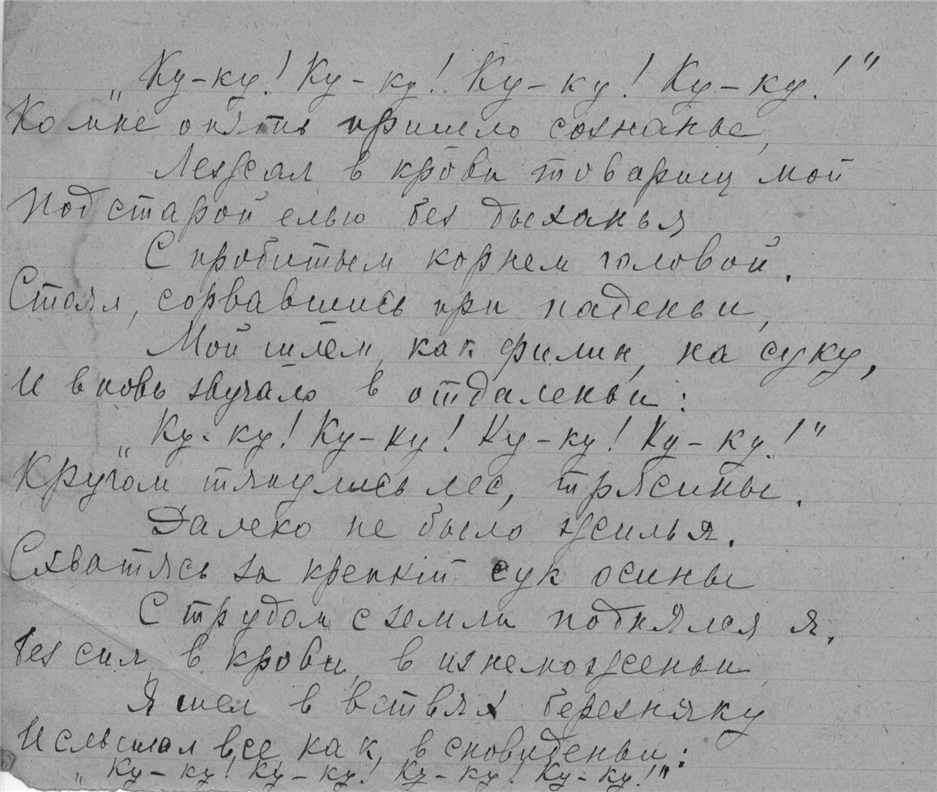 „Ку-ку! Ку-ку! Ку-ку! Ку-ку!"
Ко мне опять пришло сознанье,
Лежал в крови товарищ мой
Под старой елью без дыханья
С пробитым корнем головой.
Стоял, сорвавшись при паденьи,
Мой шлем, как филин, на суку,
И вновь звучало в отдаленьи:
„Ку-ку! Ку-ку! Ку-ку! Ку-ку!"
Кругом тянулись лес, трясины.
Далеко не было жилья.
Схватясь за крепкий сук осины
С трудом с земли поднялся я.
Без сил, в крови, в изнеможеньи,
Я шел в ветвях березняку
И слышал все как, в сновиденьи:
„Ку-ку! Ку-ку! Ку-ку! Ку-ку!"